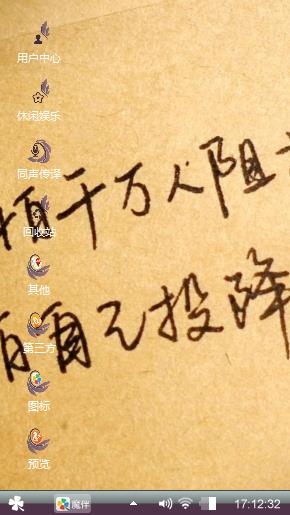 用户中心
休闲娱乐
同声传译
回收站
其他
第三方
图标
预览
怕千万人阻
怕自己投降
魔伴
17:12:32